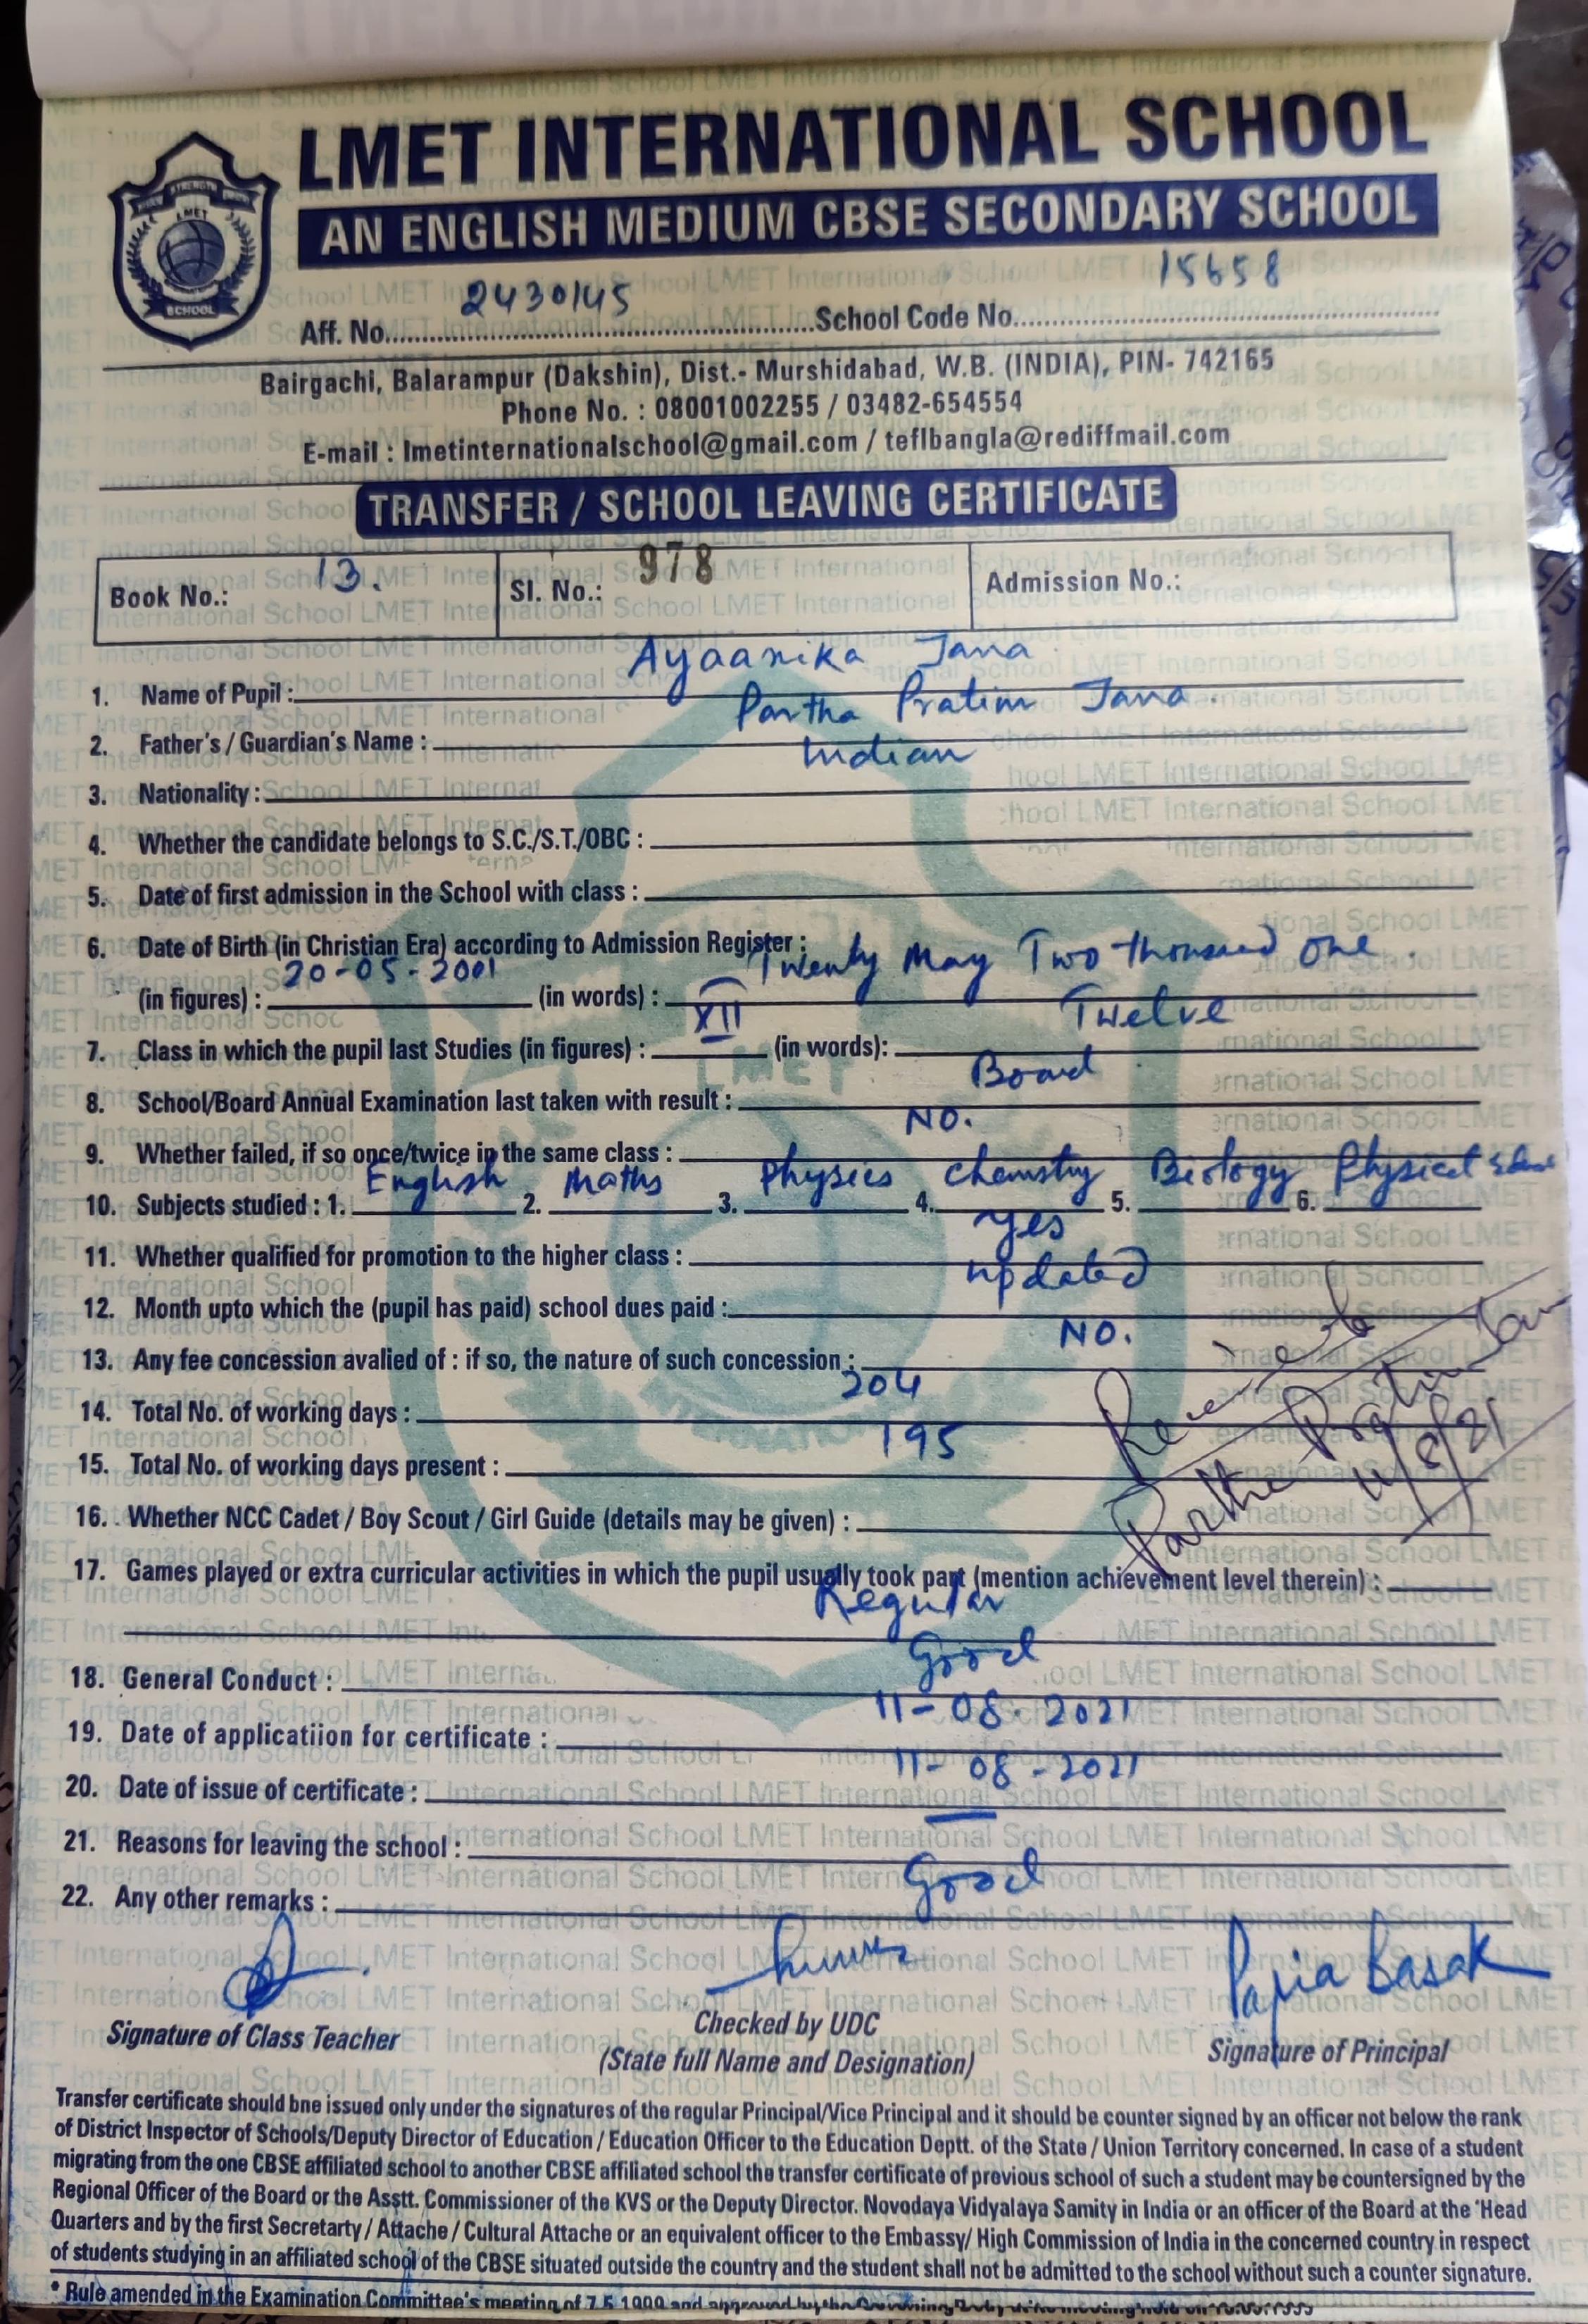 LMET INTERNATIONAL SCHOOL
AN ENGLISH MEDIUM CBSE SECONDARY SCHOOL
LMET
SCHOOL
Aff. No. 2430145 School Code No. 15658
Bairgachi, Balarampur (Dakshin), Dist.- Murshidabad, W.B. (INDIA), PIN- 742165
Phone No. : 08001002255 / 03482-654554
E-mail : lmetinternationalschool@gmail.com / teflbangla@rediffmail.com
TRANSFER / SCHOOL LEAVING CERTIFICATE
Book No.: 13. Sl. No.: 978 Admission No.:
1. Name of Pupil : Ayaanika Jana
2. Father's / Guardian's Name : Partha Pratim Jana.
3. Nationality : Indian
4. Whether the candidate belongs to S.C./S.T./OBC :
5. Date of first admission in the School with class :
6. Date of Birth (in Christian Era) according to Admission Register :
(in figures) : 20-05-2001 (in words) : Twenty May Two thousand one.
7. Class in which the pupil last Studies (in figures) : XII (in words): Twelve
8. School/Board Annual Examination last taken with result : Board
9. Whether failed, if so once/twice in the same class : NO.
10. Subjects studied : 1. English 2. Maths 3. Physics 4. Chemstry 5. Biology 6. Physical
11. Whether qualified for promotion to the higher class : Yes
12. Month upto which the (pupil has paid) school dues paid : updated
13. Any fee concession avalied of : if so, the nature of such concession : NO.
14. Total No. of working days : 204
15. Total No. of working days present : 195
16. Whether NCC Cadet / Boy Scout / Girl Guide (details may be given) :
Partha Pratim Jana
11/8/21
17. Games played or extra curricular activities in which the pupil usually took part (mention achievement level therein) :
Regular
18. General Conduct : Good
19. Date of applicatiion for certificate : 11-08-2021
20. Date of issue of certificate : 11-08-2021
21. Reasons for leaving the school : —
22. Any other remarks : Good
Papia Basak
Signature of Class Teacher Checked by UDC Signature of Principal
(State full Name and Designation)
Transfer certificate should bne issued only under the signatures of the regular Principal/Vice Principal and it should be counter signed by an officer not below the rank
of District Inspector of Schools/Deputy Director of Education / Education Officer to the Education Deptt. of the State / Union Territory concerned. In case of a student
migrating from the one CBSE affiliated school to another CBSE affiliated school the transfer certificate of previous school of such a student may be countersigned by the
Regional Officer of the Board or the Asstt. Commissioner of the KVS or the Deputy Director. Novodaya Vidyalaya Samity in India or an officer of the Board at the 'Head
Quarters and by the first Secretarty / Attache / Cultural Attache or an equivalent officer to the Embassy/ High Commission of India in the concerned country in respect
of students studying in an affiliated school of the CBSE situated outside the country and the student shall not be admitted to the school without such a counter signature.
* Rule amended in the Examination Committee's meeting of 7.5.1999 and approved by the